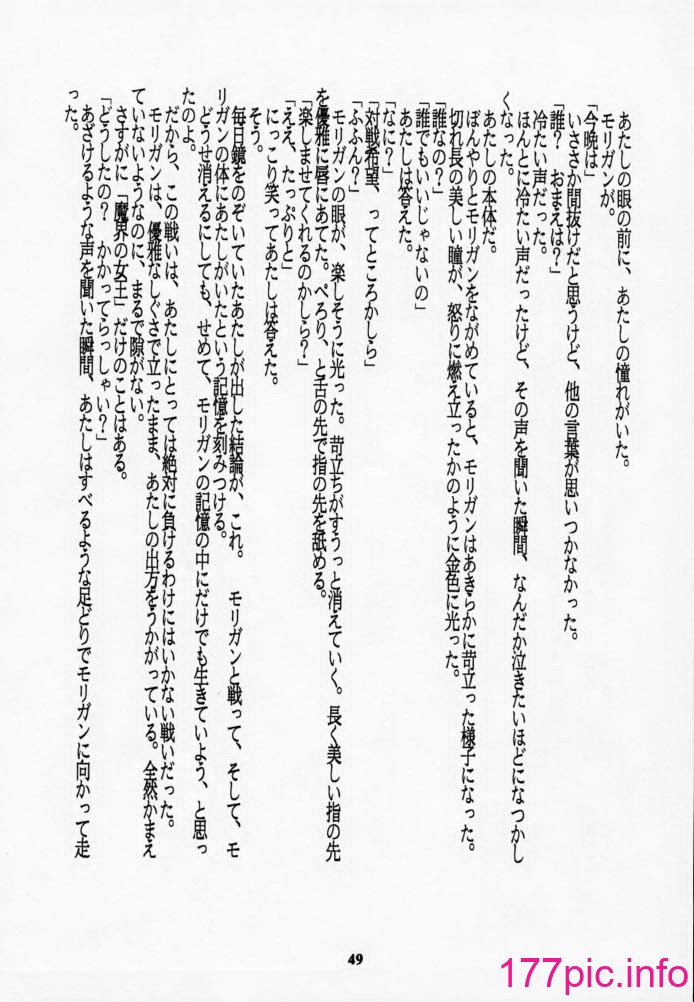 あたしの眼の前に、あたしの憧れがいた。
モリガンが。
「今晩は」
いささか間抜けだと思うけど、他の言葉が思いつかなかった。
「誰？　おまえは？」
冷たい声だった。
ほんとに冷たい声だったけど、その声を聞いた瞬間、なんだか泣きたいほどになつかし
くなった。
あたしの本体だ。
ぼんやりとモリガンをながめていると、モリガンはあきらかに苛立った様子になった。
切れ長の美しい瞳が、怒りに燃え立ったかのように金色に光った。
「誰なの？」
「誰でもいいじゃないの」
あたしは答えた。
「なに？」
「対戦希望、ってところかしら」
「ふふん？」
モリガンの眼が、楽しそうに光った。苛立ちがすうっと消えていく。長く美しい指の先
を優雅に唇にあてた。ぺろり、と舌の先で指の先を舐める。
「楽しませてくれるのかしら？」
「ええ、たっぷりと」
にっこり笑ってあたしは答えた。
そう。
毎日鏡をのぞいていたあたしが出した結論が、これ。　モリガンと戦って、そして、モ
リガンの体にあたしがいたという記憶を刻みつける。
どうせ消えるにしても、せめて、モリガンの記憶の中にだけでも生きていよう、と思っ
たのよ。
だから、この戦いは、あたしにとっては絶対に負けるわけにはいかない戦いだった。
モリガンは、優雅なしぐさで立ったまま、あたしの出方をうかがっている。全然かまえ
ていないようなのに、まるで隙がない。
さすがに「魔界の女王」だけのことはある。
「どうしたの？　かかってらっしゃい？」
あざけるような声を聞いた瞬間、あたしはすべるような足どりでモリガンに向かって走
った。
49
177pic.info